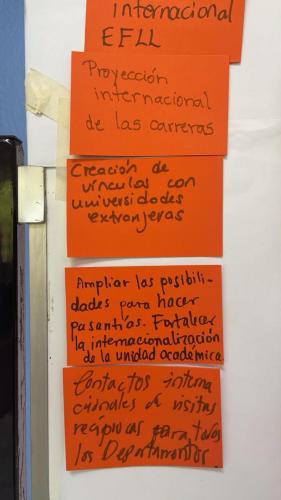 internacional
EFLL
Proyección
internacional
de las carreras
Creación de
vínculos con
universidades
extranjeras
Ampliar las posibili-
dades para hacer
pasantías. Fortalecer
la internacionalización
de la unidad académica
Contactos interna
cionales de visitas
recíprocas para todos
los Departamentos.